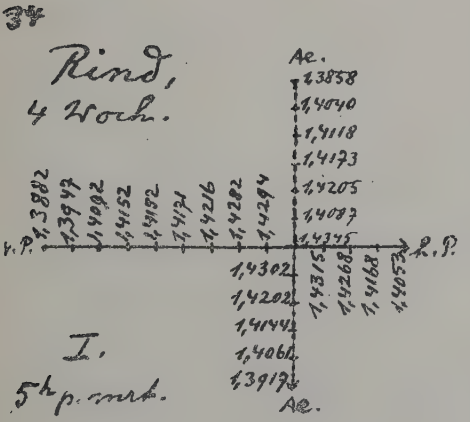 34
Rind,
4 Woch.
Ae.
1,3858
1,4040
1,4118
1,4173
1,4205
1,4087
1,4345
v. P.
1,3882
1,3947
1,4092
1,4152
1,4171
1,4216
1,4282
1,4294
h. P.
1,4315
1,4268
1,4168
1,4053
1,4302
1,4202
1,4144
1,4061
1,3917
Ae.
I.
5h p. mrt.